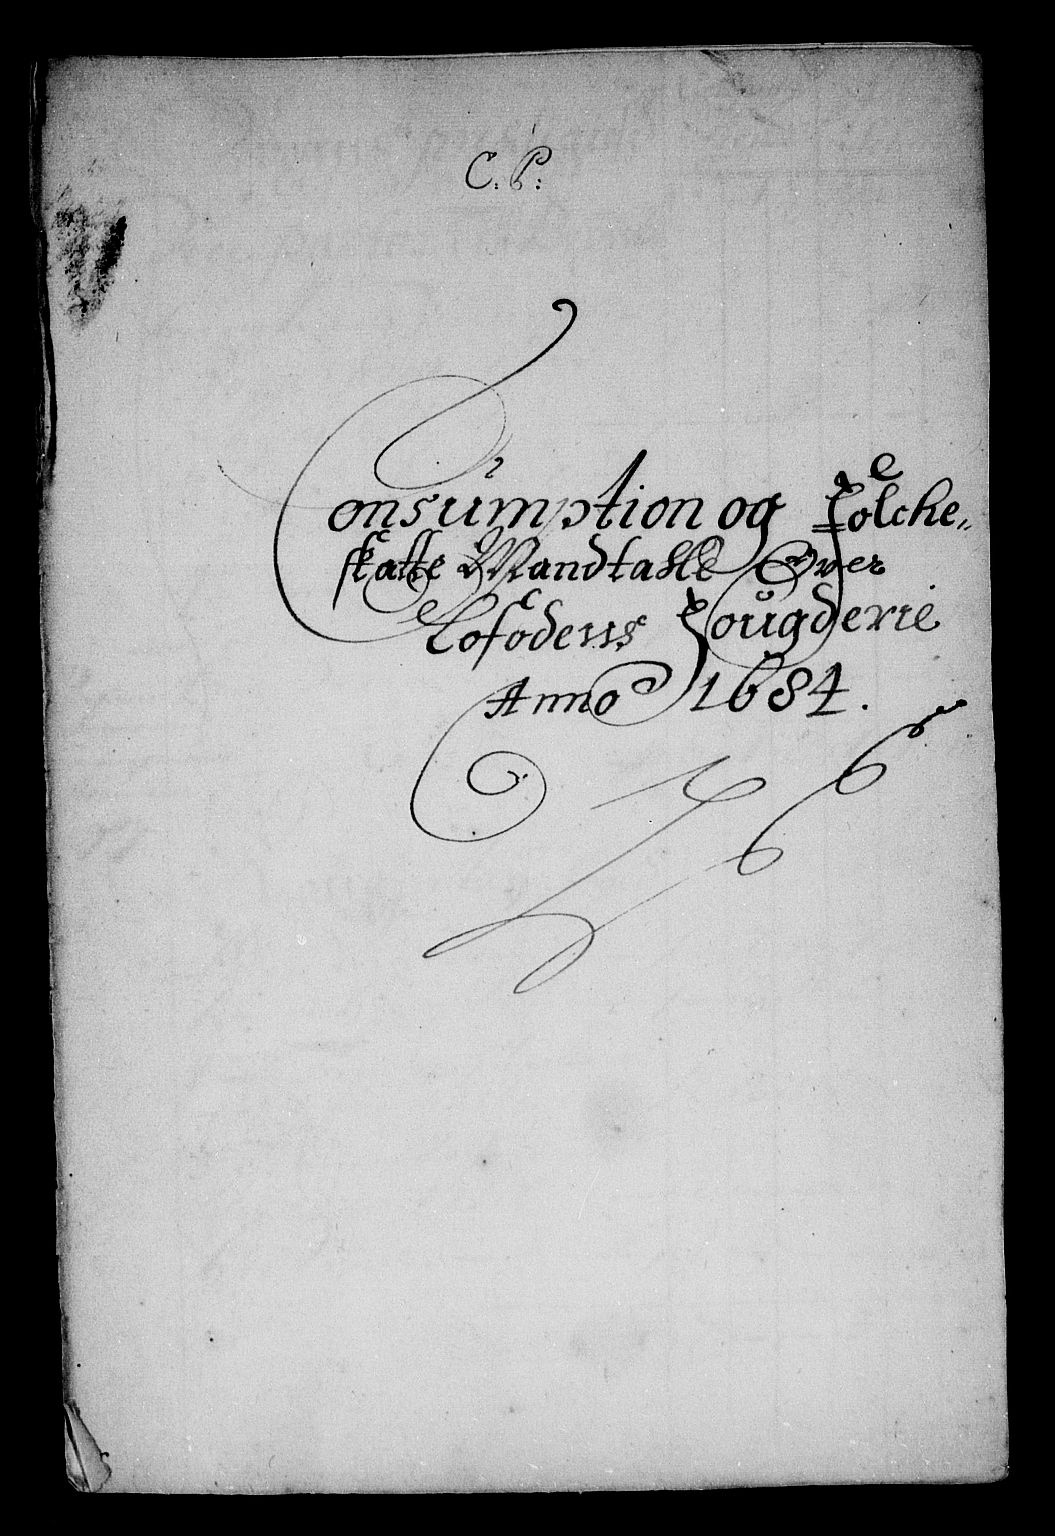 C. P:
Consumption og Folche„
skatte Mandtall Over
Lofodens Fougderie
Anno 1684.